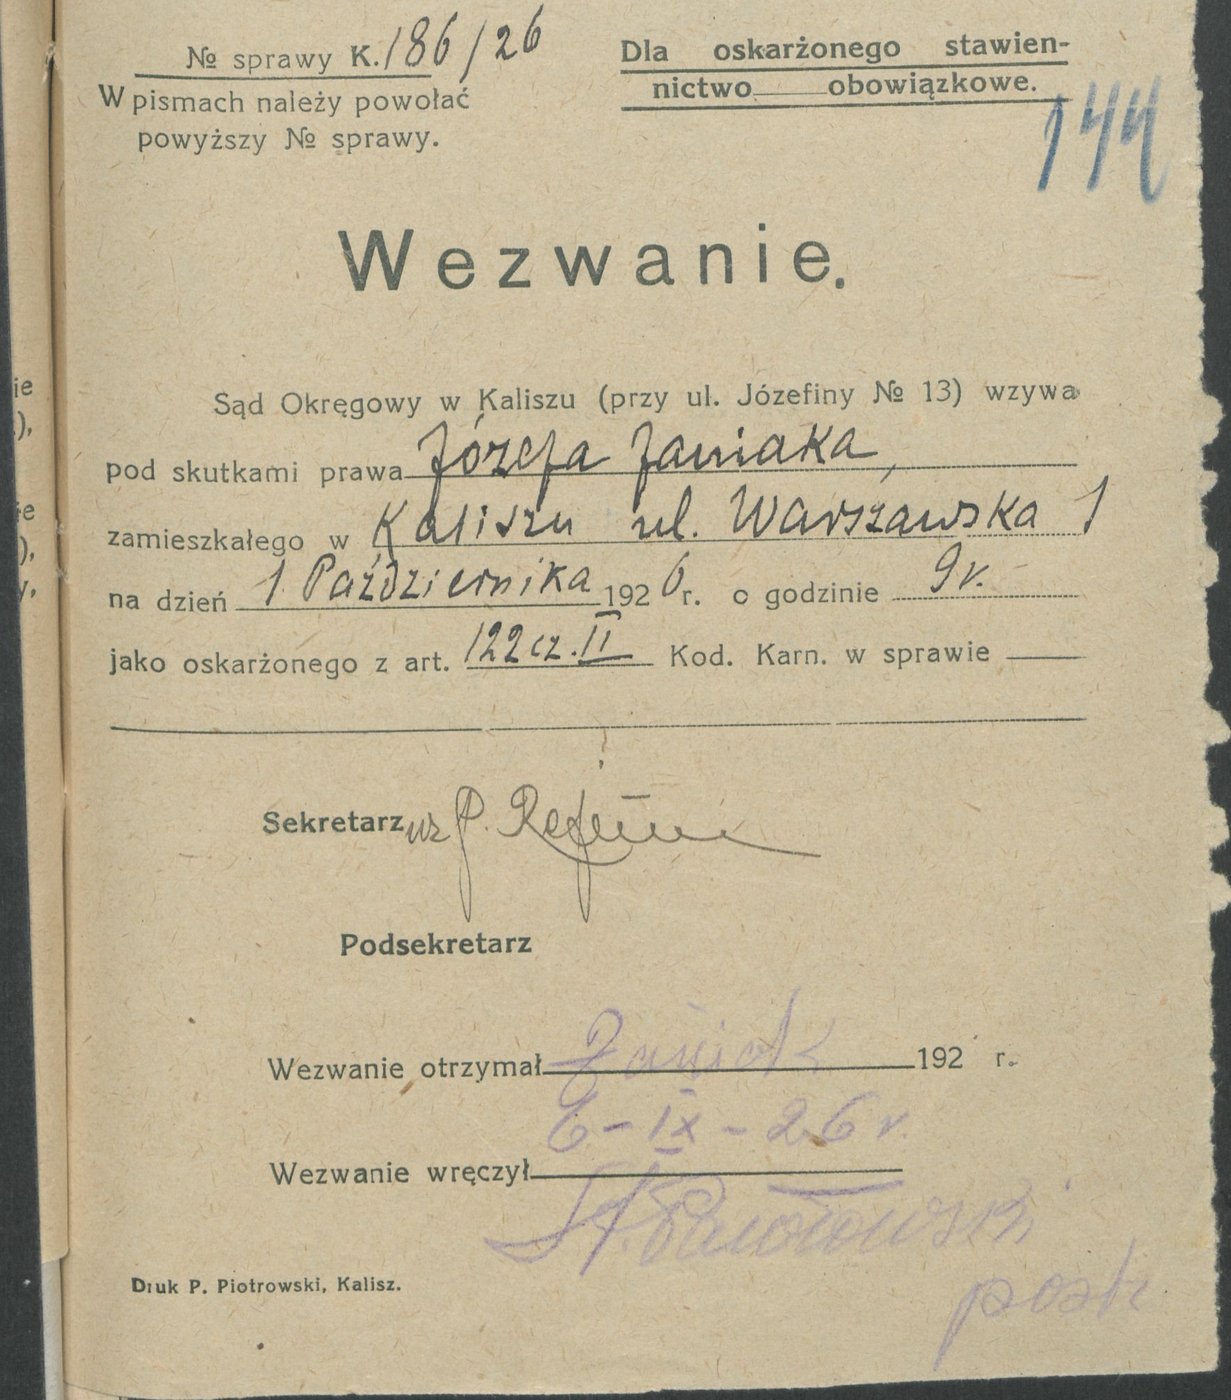 № sprawy K. 186/26
W pismach należy powołać
powyższy № sprawy.
Dla oskarżonego stawien-
nictwo obowiązkowe.
144
Wezwanie.
Sąd Okręgowy w Kaliszu (przy ul. Józefiny № 13) wzywa
pod skutkami prawa Józefa Janiaka,
zamieszkałego w Kaliszu ul. Warszawska 1
na dzień 1 Października 1926 r. o godzinie 9 r.
jako oskarżonego z art. 122 cz. II Kod. Karn. w sprawie
Sekretarz wz P.
Podsekretarz
Wezwanie otrzymał Janiak 192 r.
6-IX-26 r.
Wezwanie wręczył
St. Pawłowski
post
Druk P. Piotrowski, Kalisz.
ie
),
ie
),
y,